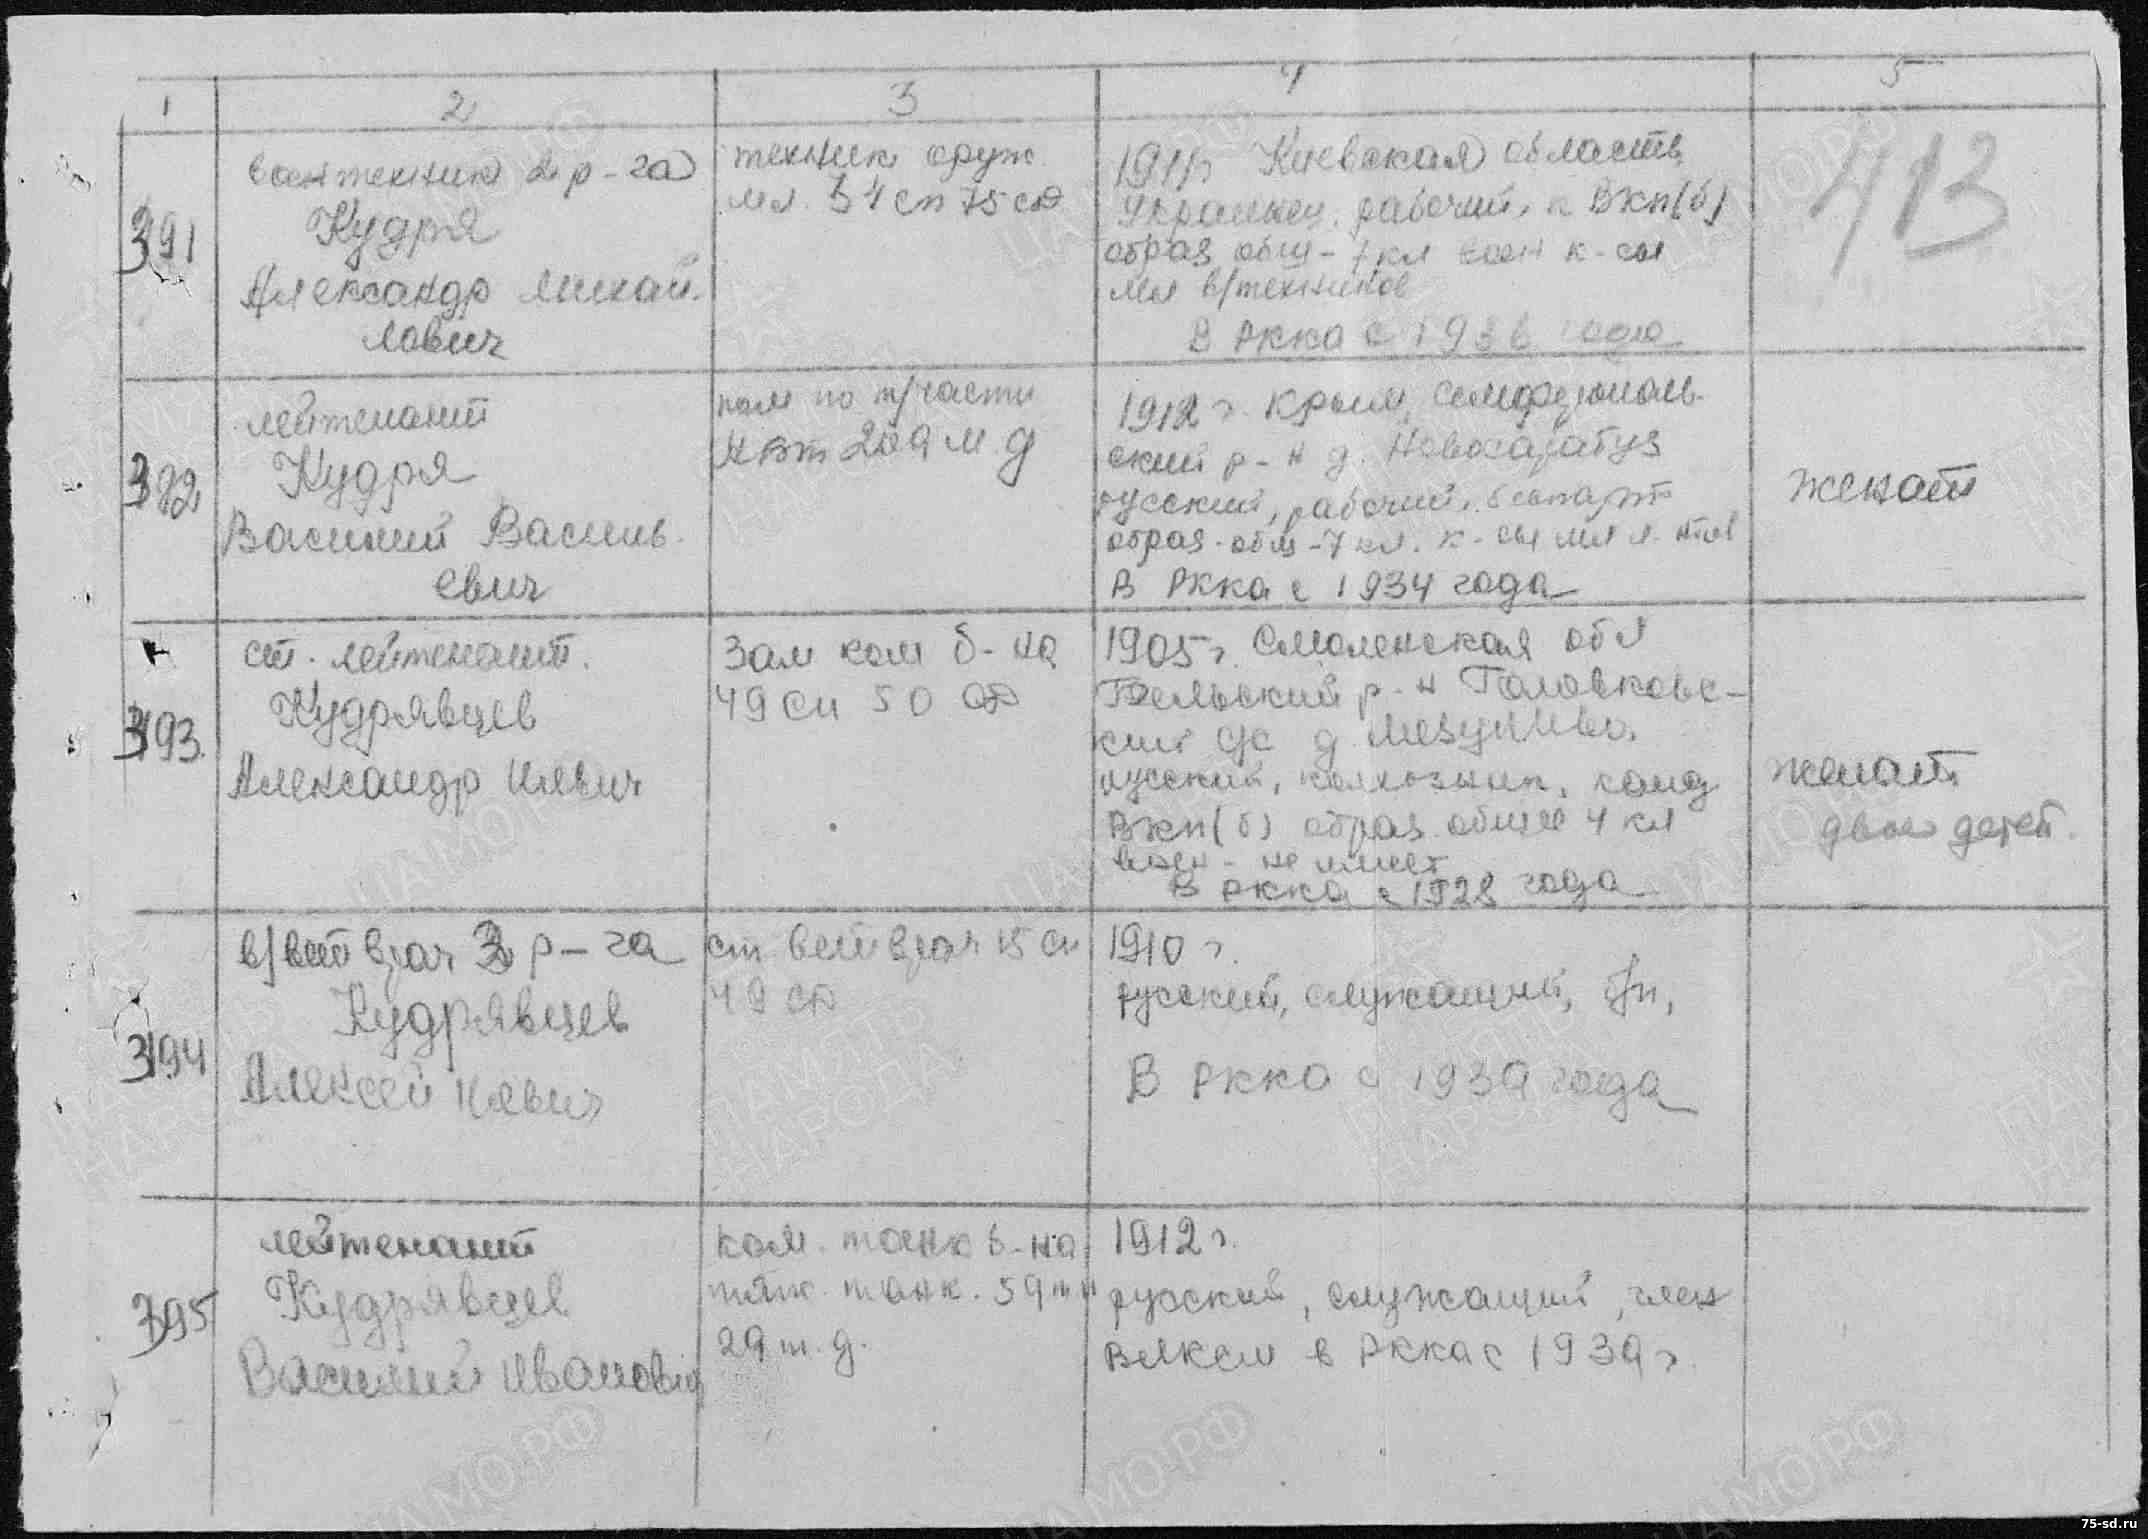 1 2 3 4 5
413
391
воентехник 2 р-га
Кудря
Александр Михай-
лович
техник оруж.
мл. 34 сп 75 сд
1911г Киевская область,
Украинец, рабочий, к ВКП(б)
образ общ - 7 кл воен к-сы
мл в/техников
В РККА с 1936 года
392
лейтенант
Кудря
Василий Василь-
евич
пом по т/части
209 м.д
1912 г. Крым, Симферополь-
ский р-н д.
русский, рабочий, беспарт
образ. общ - 7 кл. к-сы мл л-нтов
В РККА с 1934 года
женат
393.
ст. лейтенант.
Кудрявцев
Александр Ильич
Зам ком б-на
49 сп 50 сд
1905г. Смоленская обл
Бельский р-н Головковс-
кий с/с д.
русский, колхозник, канд
ВКП(б) образ. общее 4 кл
воен - не имеет
В РККА с 1928 года
женат
двое детей.
394
в/вет врач 3 р-га
Кудрявцев
Алексей Ильич
ст вет врач 15 сп
49 сд
1910 г.
русский, служащий, б/п,
В РККА с 1939 года
395
лейтенант
Кудрявцев
Василий Иванович
ком. танк б-на
тяж. танк. 59 тп
29 т. д.
1912 г.
русский, служащий, член
ВЛКСМ в РККА с 1939 г.
75-sd.ru